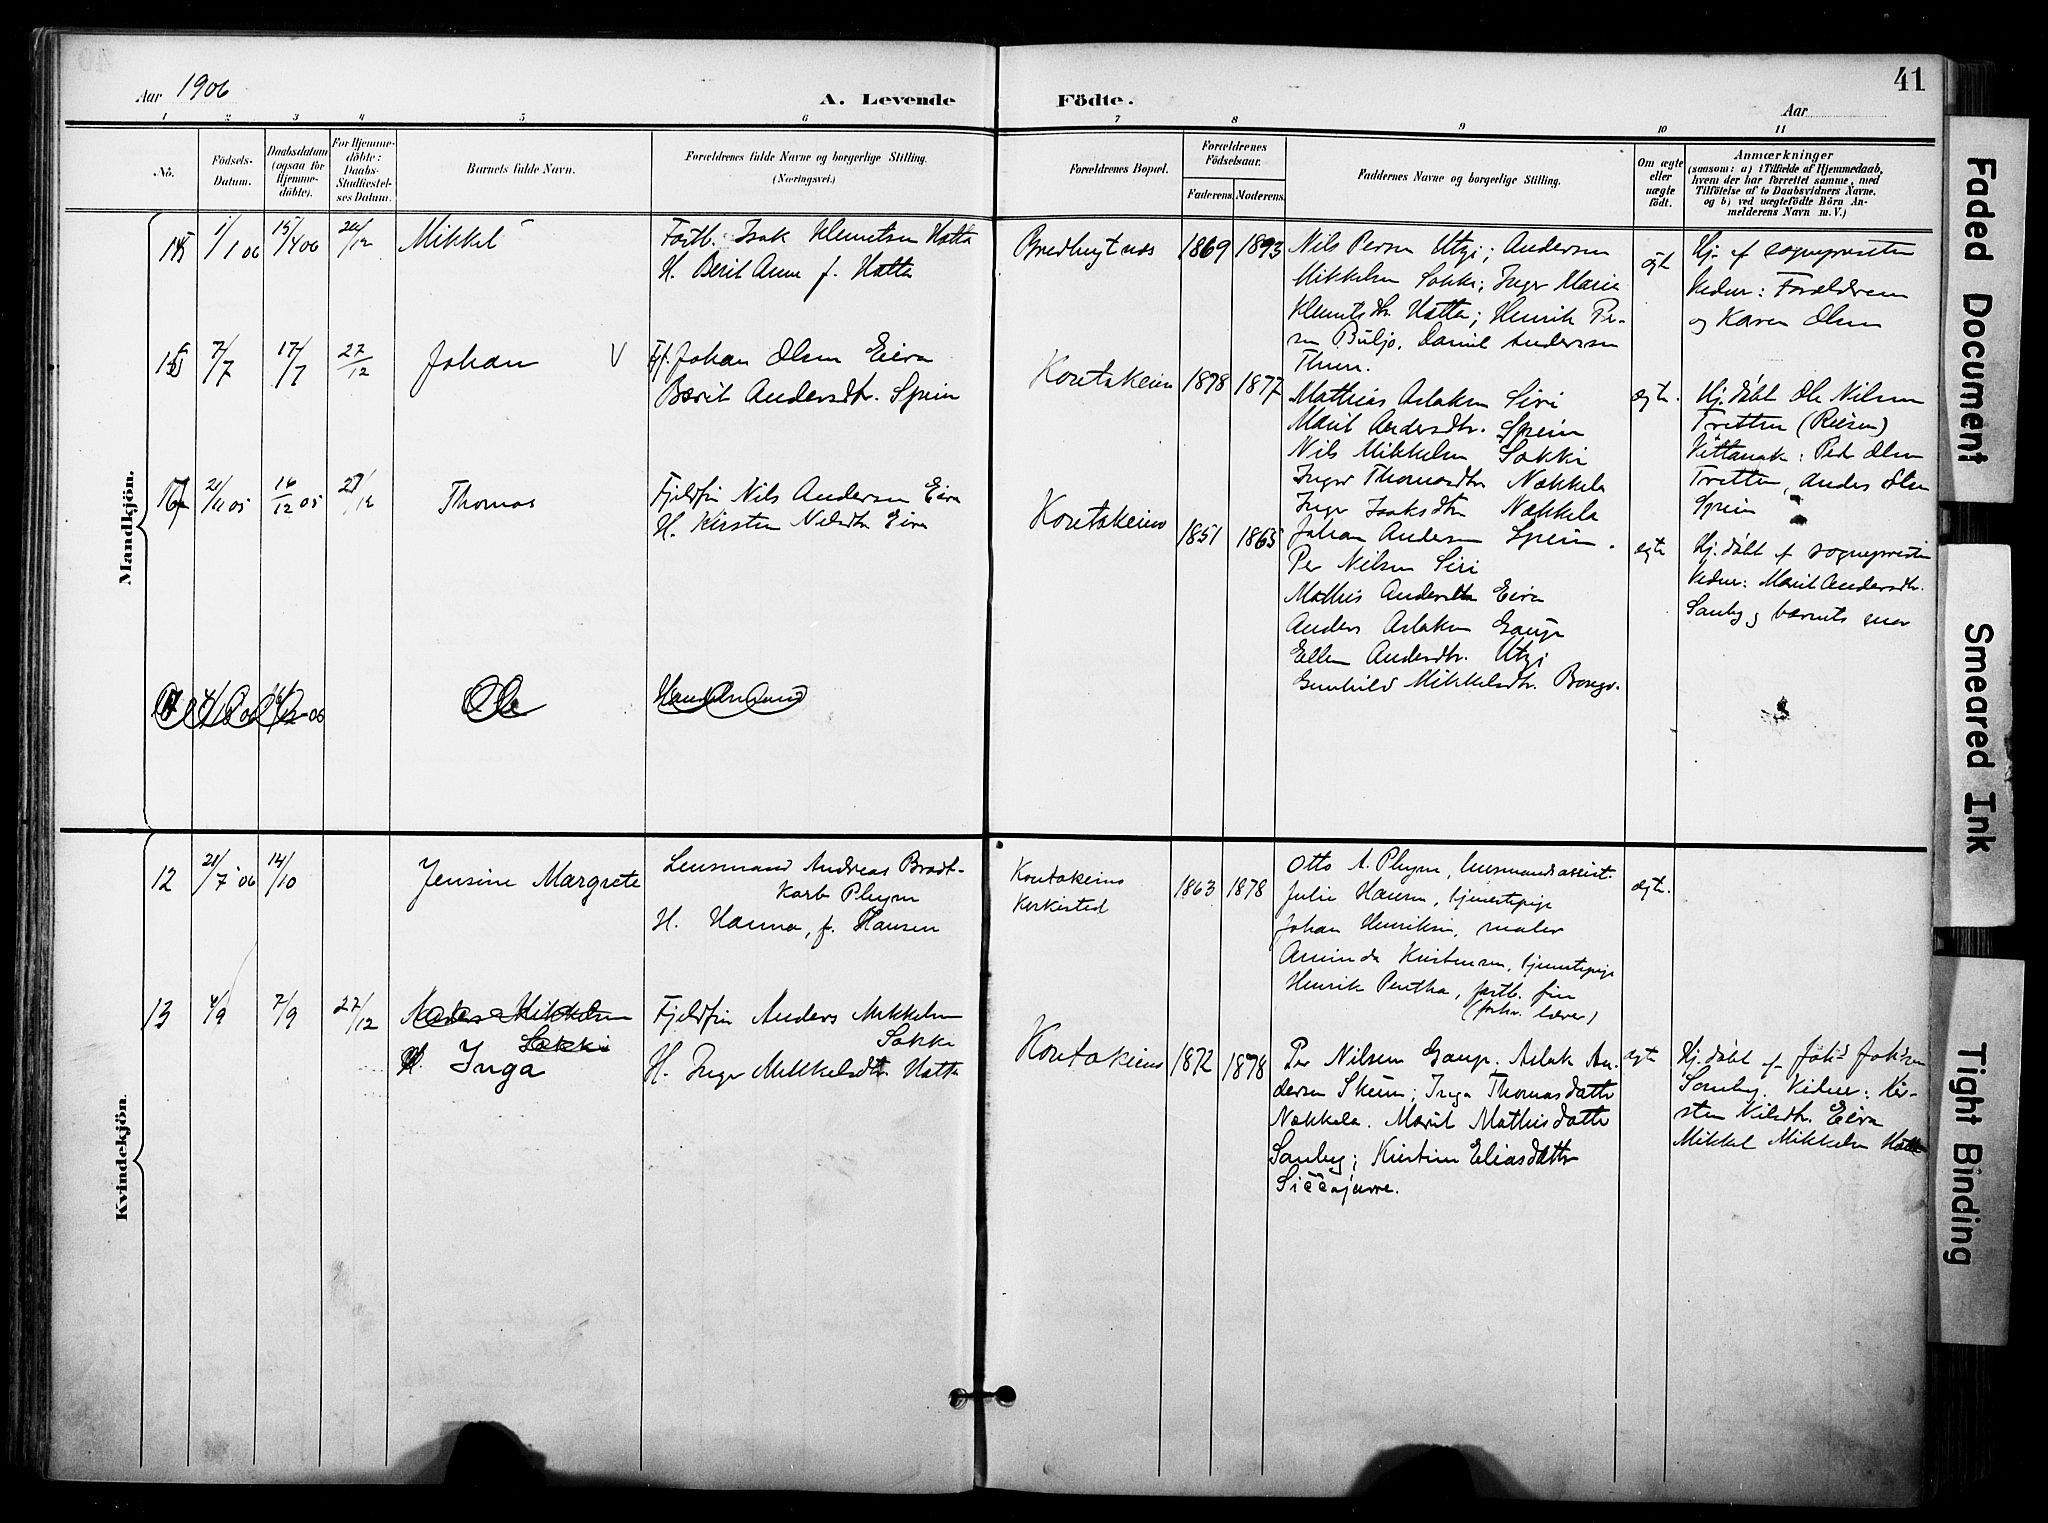 Aar 1906
A. Levende
Födte.
Aar
41
1
2
3
4
5
6
7
8
9
10
11
No.
Födsels-
Datum.
Daabsdatum
(ogsaa for
Hjemme-
döbte).
For Hjemme-
döbte:
Daabs-
Stadfæstel-
ses Datum.
Barnets fulde Navn.
Forældrenes fulde Navne og borgerlige Stilling.
(Næringsvei.)
Forældrenes Bopæl.
Forældrenes
Födselsaar.
Faderens.
Moderens.
Faddernes Navne og borgerlige Stilling.
Om ægte
eller
uægte
födt.
Anmærkninger
(saasom: a) i Tilfælde af Hjemmedaab,
hvem der har forrettet samme, med
Tilföielse af to Daabsvidners Navne.
og b) ved uægtefödte Börn An-
melderens Navn m. V.)
Mandkjön.
1/1 06
15/4 06
26/12
Mikkel
Fastb. Isak Klemitsen Hætta
H. Berit Anne f. Hætta
Bredbugtnæs
1869
1893
Nils Persen Utzi; Andersen
Mikkelsen Sokki; Inger Marie
Klemitsdtr Hætta; Henrik Per-
sen Buljo. Daniel Andersen
Thuri.
ægte
Hj. af sognepresten
Vidner: Forældrene
og Karen Olsen
7/7
17/7
27/12
Johan V
Fj. Johan Olsen Eira
Berit Andersdtr. Spein
Koutokeino
1878
1877
Mathias Aslaksen Siri
Marit Andersdtr. Spein
Nils Mikkelsen Sokki
Inger Thomasdtr Nækkela
Inger Isaksdtr Nækkela
ægte.
Hj. döbt Ole Nilsen
Tretten (Reisen)
Vittanak: Peder Olsen
Tretten, Anders Olsen
Spein
21/11 05
16/12 05
27/12
Thomas
Fjeldfin Nils Andersen Eira
H. Kirsten Nilsdtr Eira
Koutokeino
1851
1865
Johan Andersen Spein.
Per Nilsen Siri
Mathis Andersen Eira
Anders Aslaksen Gaup
Ellen Andersdtr. Utzi
Gunhild Mikkelsdtr. Bongo.
ægte
Hj. döbt af sognepresten
Vidner: Marit Andersdtr.
Sanby og barnets mor
Ole
Kvindekjön.
12
21/7 06
14/10
Jensine Margrete
Lensmand Andreas Bradt-
korb Pleym
H. Hanna, f. Hansen
Koutokeino
Kirkested
1863
1878
Otto A. Pleym, lensmandsassist.
Julie Hansen, tjenestepige
Johan Henriksen, maler
Aminda Kristensen, tjenestepige
Henrik Pentha, fastb. fin
(forhv. lærer)
ægte.
13
4/9
7/9
27/12
Anders Mikkelsen
Sokki
H. Inga
Fjeldfin Anders Mikkelsen
Sokki
H. Inger Mikkelsdtr Hætta
Koutokeino
1872
1878
Per Nilsen Gaup, Aslak An-
dersen Skum; Inga Thomasdatter
Nækkela. Marit Mathisdatter
Sanby; Kirstine Eliasdatter
Siččajavre.
ægte
Hj. döbt af Joh.s Joh.sen
Sanby. Vidner: Kir-
sten Nilsdtr. Eira
Mikkel Mikkelsen Hætta
Faded Document
Smeared Ink
Tight Binding